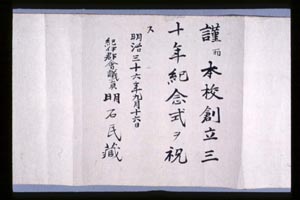 謹而本校創立三
十年紀念式ヲ祝
ス
明治三十六年九月十六日
紀伊郡會議員 明石民蔵